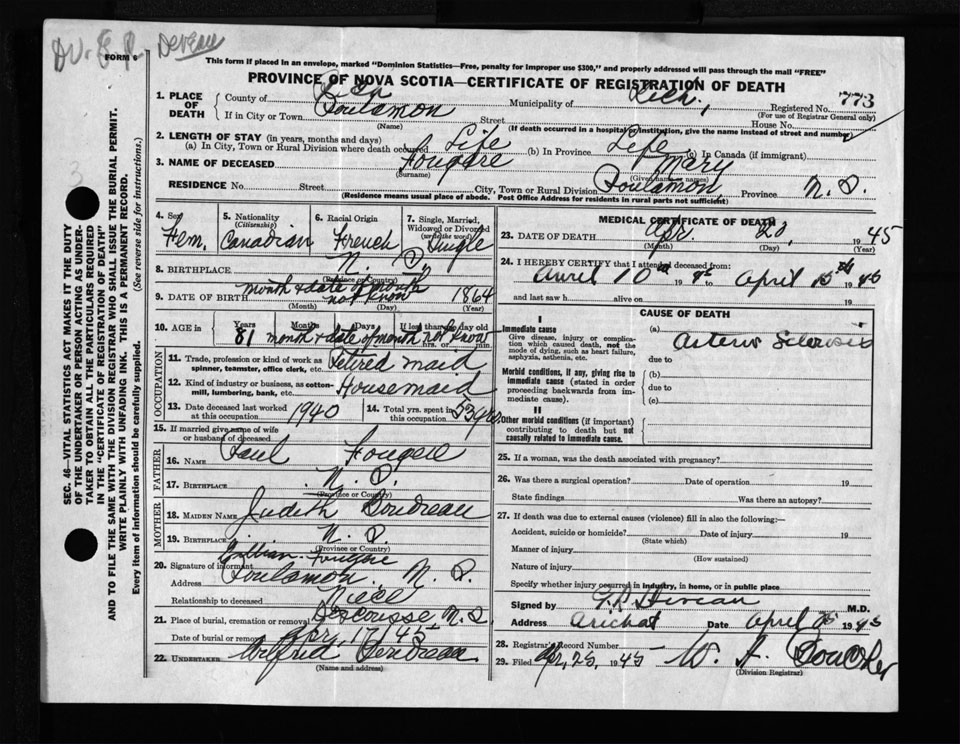 DV. E. R. Deveau
FORM 6
This form if placed in an envelope, marked "Dominion Statistics—Free, penalty for improper use $300," and properly addressed will pass through the mail "FREE"
PROVINCE OF NOVA SCOTIA—CERTIFICATE OF REGISTRATION OF DEATH
1. PLACE OF DEATH County of Rich Municipality of Rich, Registered No. 773
(For use of Registrar General only)
If in City or Town Poulamon Street House No.
(Name) (If death occurred in a hospital or institution, give the name instead of street and number)
2. LENGTH OF STAY (in years, months and days)
(a) In City, Town or Rural Division where death occurred Life (b) In Province Life (c) In Canada (if immigrant)
3. NAME OF DECEASED Fougere Mary
(Surname) (Given name or names)
RESIDENCE No. Street City, Town or Rural Division Poulamon, Province N. S.
(Residence means usual place of abode. Post Office Address for residents in rural parts not sufficient)
4. Sex Fem.
5. Nationality (Citizenship) Canadian
6. Racial Origin French
7. Single, Married, Widowed or Divorced (write the word) Single
8. BIRTHPLACE N. S.
(Province or Country)
9. DATE OF BIRTH month & date of month not know 1864
(Month) (Day) (Year)
10. AGE in Years Months Days If less than one day old
81 month & date of month not know hrs. or min.
OCCUPATION
11. Trade, profession or kind of work as spinner, teamster, office clerk, etc. Retired maid
12. Kind of industry or business, as cotton-mill, lumbering, bank, etc. Housemaid
13. Date deceased last worked at this occupation 1940
14. Total yrs. spent in this occupation 53 yrs.
15. If married give name of wife or husband of deceased
FATHER
16. NAME Paul Fougere
17. BIRTHPLACE N. S.
(Province or Country)
MOTHER
18. MAIDEN NAME Judith Boudreau
19. BIRTHPLACE N. S.
(Province or Country)
20. Signature of informant Lillian Fougere
Address Poulamon, N. S.
Relationship to deceased Niece
21. Place of burial, cremation or removal Descousse N. S.
Date of burial or removal Apr, 17, 45
22. UNDERTAKER Wilfred Boudreau
(Name and address)
MEDICAL CERTIFICATE OF DEATH
23. DATE OF DEATH Apr. 20, 1945
(Month) (Day) (Year)
24. I HEREBY CERTIFY that I attended deceased from:
April 10th 1945 to April 15th 1945
and last saw h alive on 19
CAUSE OF DEATH
I
Immediate cause
Give disease, injury or complication which caused death, not the mode of dying, such as heart failure, asphyxia, asthenia, etc.
(a) Arterio Sclerosis
due to
Morbid conditions, if any, giving rise to immediate cause (stated in order proceeding backwards from immediate cause).
(b)
due to
(c)
II
Other morbid conditions (if important) contributing to death but not causally related to immediate cause.
25. If a woman, was the death associated with pregnancy?
26. Was there a surgical operation? Date of operation 19
State findings Was there an autopsy?
27. If death was due to external causes (violence) fill in also the following:—
Accident, suicide or homicide? Date of injury 19
(State which)
Manner of injury
(How sustained)
Nature of injury
Specify whether injury occurred in industry, in home, or in public place
Signed by Deveau M.D.
Address Arichat Date April 25 1945
28. Registrar's Record Number
29. Filed Apr, 25, 1945 W. J.
(Division Registrar)
SEC. 46—VITAL STATISTICS ACT MAKES IT THE DUTY
OF THE UNDERTAKER OR PERSON ACTING AS UNDER-
TAKER TO OBTAIN ALL THE PARTICULARS REQUIRED
IN THE "CERTIFICATE OF REGISTRATION OF DEATH"
AND TO FILE THE SAME WITH THE DIVISION REGISTRAR WHO SHALL ISSUE THE BURIAL PERMIT.
WRITE PLAINLY WITH UNFADING INK. THIS IS A PERMANENT RECORD.
Every item of information should be carefully supplied. (See reverse side for instructions.)
3